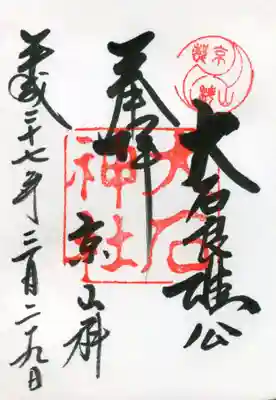 大石良雄公
奉拝
京山科
大石
神社
平成二十七年三月二十九日